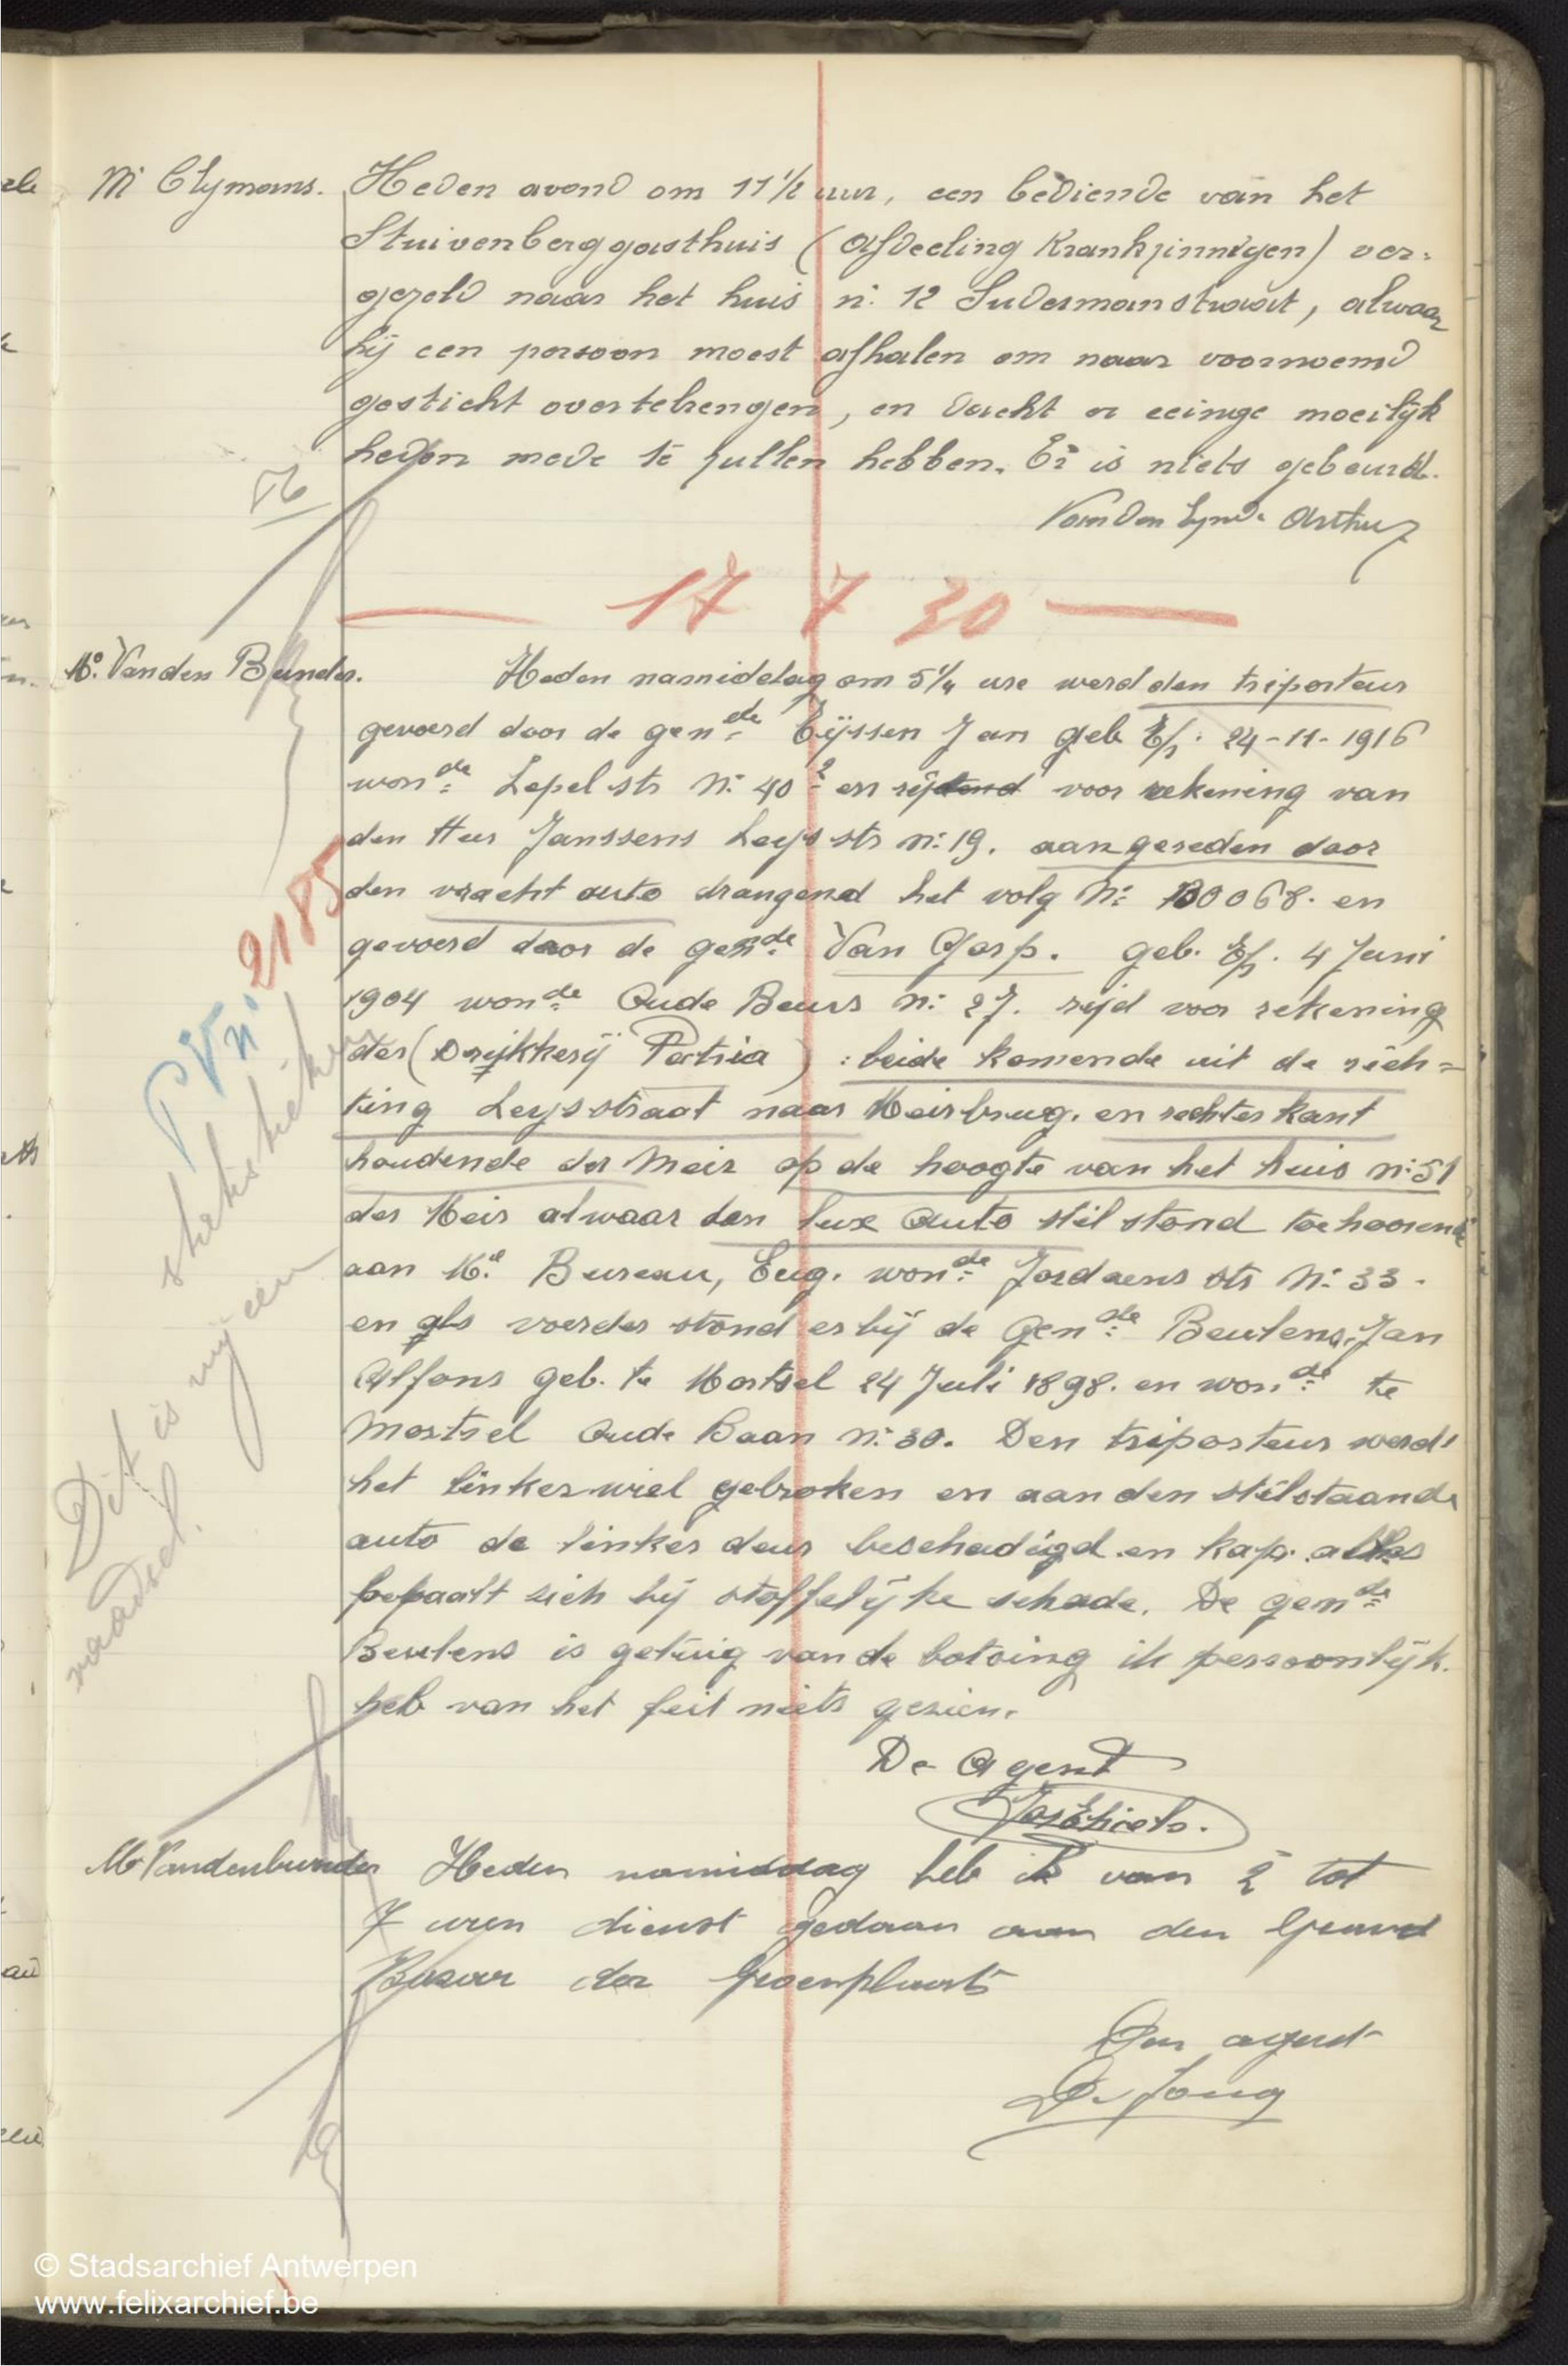 Mr Clymans.
Heden avond om 11 1/2 uur, een bediende van het
Stuivenberggasthuis (Afdeeling Krankzinnigen) ver-
gezeld naar het huis n: 12 Sudermanstraat, alwaar
hij een persoon moest afhalen om naar voornoemd
gesticht overtebrengen, en dacht er eeinge moeilijk
heden mede te zullen hebben. Er is niets gebeurd.
Van den Eynde Arthur
17 7 30
Mr. Vanden Bunder.
Heden namiddag om 5 1/4 ure werd den triporteur
gevoerd door de gen=de Eijssen Jan geb. 24-11-1916
won=de Lepel str N: 40 en rijdend voor rekening van
den Heer Janssens Leys str n: 19. aangereden door
den vracht auto drangend het volg N: 130068. en
gevoerd door de gen=de Van Gorp. geb. 4 Juni
1904 won=de Oude Beurs n: 27. rijd voor rekening
der (Drijkkerij Patria) : beide komende uit de rich=
ting Leysstraat naar Meirbrug. en rechter kant
houdende der Meir op de hoogte van het huis n: 51
der Meir alwaar den luxe auto stil stond toehoorende
aan Mr. Bureau, Eug. won=de Jordaens str N: 33.
en als voerder stond er bij de gen=de Beulens Jan
Alfons geb. te Mortsel 24 Juli 1898. en won=de te
Mortsel Oude Baan n: 30. Den triporteur werd
het linker wiel gebroken en aan den stilstaande
auto de linker deur beschadigd en kap. alles
bepaalt zich bij stoffelijke schade. De gen=de
Beulens is getuig van de botsing ik persoonlijk.
heb van het feit niets gezien.
De Agent
PV n: 2185
Dit is mij een
raadsel.
Mr Vandenbunder
Heden namiddag heb ik van 2 tot
7 uren dienst gedaan aan den Grand
Bazar der Groenplaats
Den agent
De Jong
© Stadsarchief Antwerpen
www.felixarchief.be